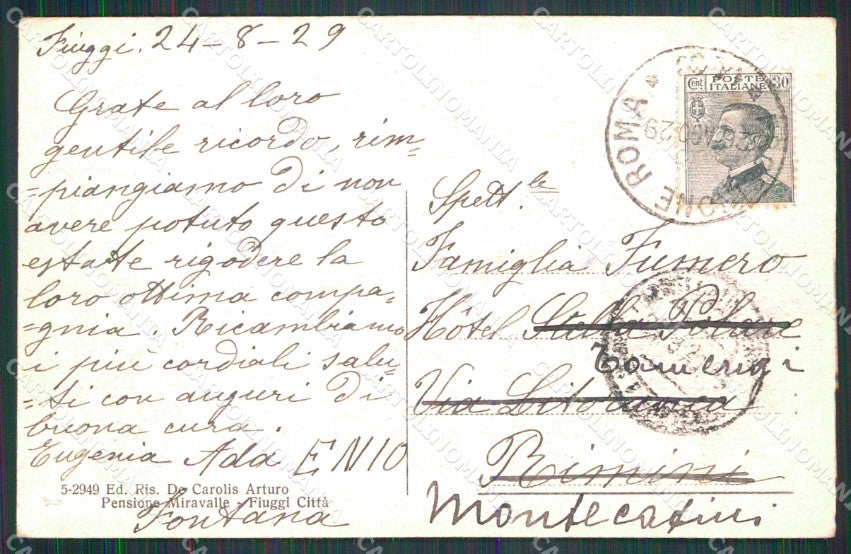 Fiuggi. 24-8-29
Grate al loro
gentile ricordo, rim-
-piangiamo di non
avere potuto questo
estate rigodere la
loro ottima compa-
-gnia. Ricambiamo
i più cordiali salu-
-ti con auguri di
buona cura.
Eugenia Ada ENIO
Fontana
5-2949 Ed. Ris. De Carolis Arturo
Pensione Miravalle - Fiuggi Città
POSTE
ITALIANE
Cent 30
ROMA
Spett.le
Famiglia Fumero
Hôtel Stella Polare
Tamerici
Via Litoranea
Rimini
Montecatini
CARTOLINOMANIA